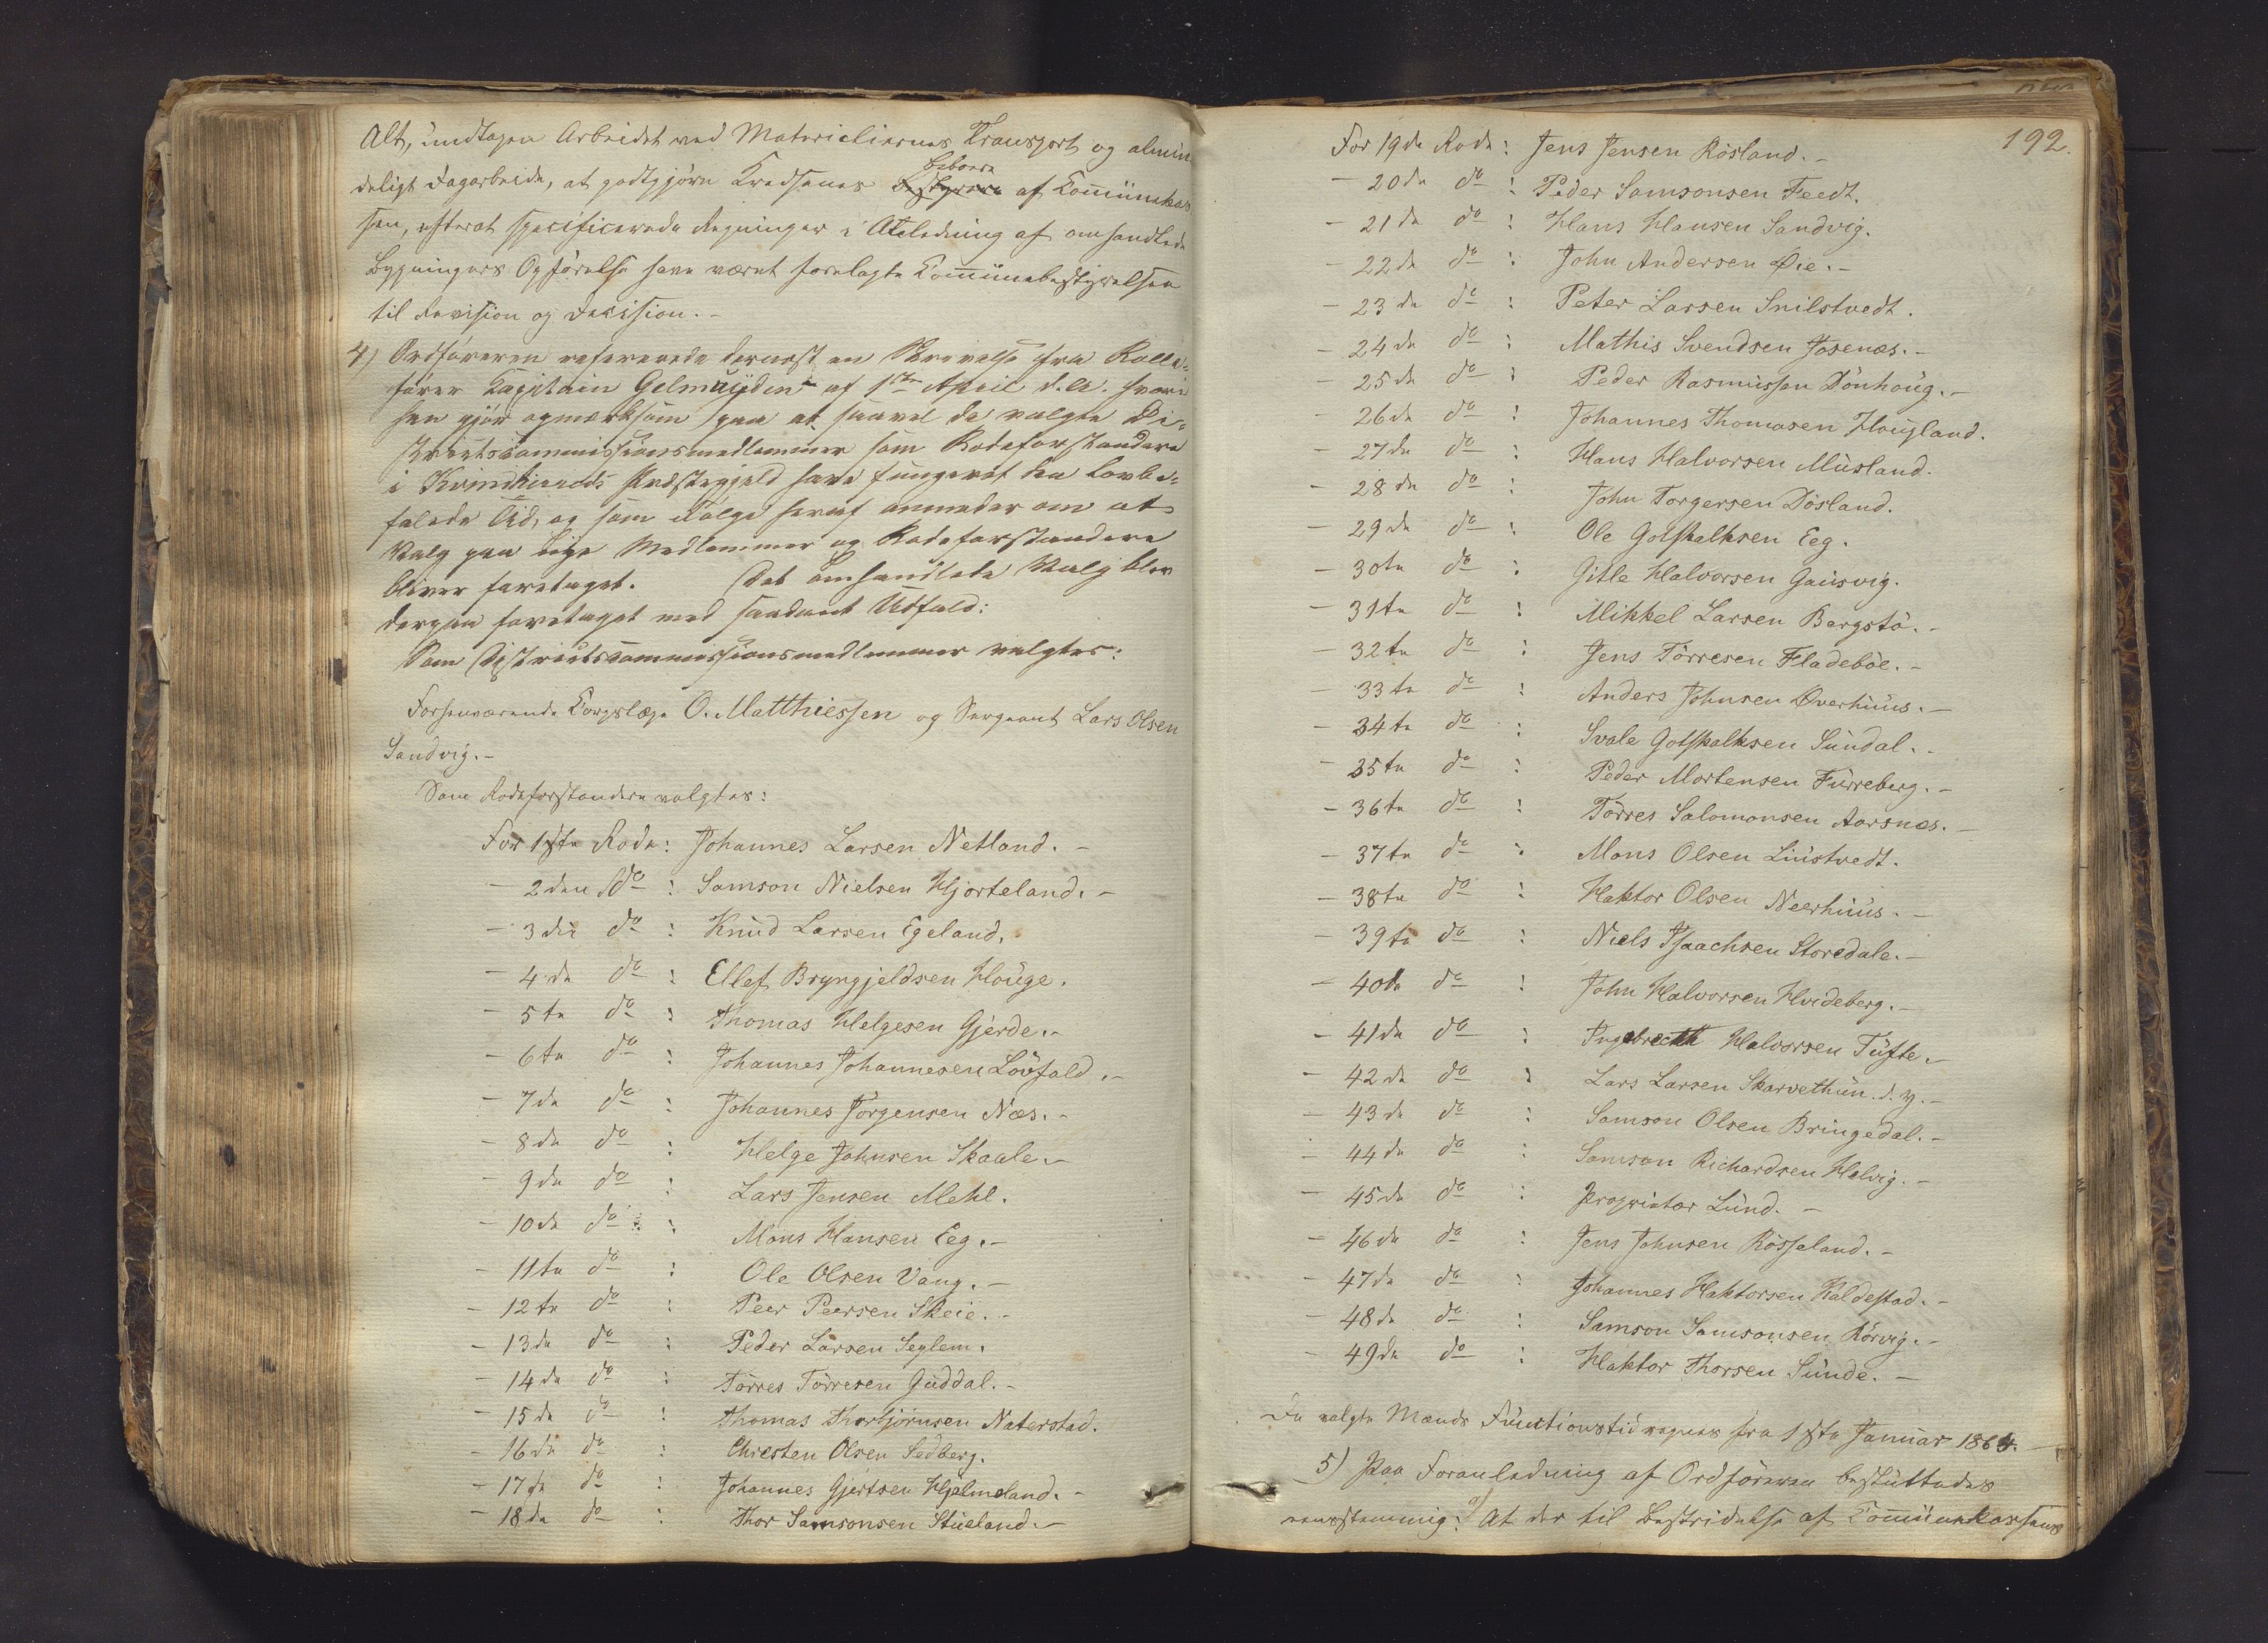 Alt, undtagen Arbeidet ved Materialiernes Transport og almin
deligt Dagarbeide, at godtgjøre Kredsenes Beboere Bestyrere af Kommunekas
sen, efterat specificerede Regninger i Anledning af omhandlede
Bygningers Opførelse have været forelagte Kommunebestyrelsen
til Revision og Decision. -
4) Ordføreren refererede dernæst en Skrivelse fra Rulle-
fører Kapitain Gelmuyden af 1ste April d.A. hvori
han gjør opmærksom paa at saavel de valgte Di-
strictscommissionsmedlemmer som Rodeforstandere
i Kvindherreds Præstegjeld have fungeret den lovbe-
falede Tid, og som Følge heraf anmoder om at
Valg paa nye Medlemmer og Rodeforstandere
bliver foretaget. Det omhandlede Valg blev
derpaa foretaget med saadant Udfald:
Som Districtscommissionsmedlemmer valgtes:
Forhenværende Corpslæge O. Matthiessen og Sergeant Lars Olsen
Sandvig. -
Som Rodeforstandere valgtes:
For 1ste Rode: Johannes Larsen Netland. -
- 2den do : Samson Nielsen Hjorteland. -
- 3die do : Knud Larsen Egeland.
- 4de do : Ellef Bryngjeldsen Houge.
- 5te do : Thomas Helgesen Gjerde. -
- 6te do : Johannes Johannesen Lövfald. -
- 7de do : Johannes Jörgensen Næs. -
- 8de do : Helge Johnsen Skaale. -
- 9de do : Lars Jensen Mehl.
- 10de do : Mons Hansen Eeg. -
- 11te do : Ole Olsen Vang. -
- 12te do : Peer Peersen Skeie. -
- 13de do : Peder Larsen Seglem.
- 14de do : Törres Törresen Guddal. -
- 15de do : Thomas Thorbjörnsen Naterstad.
- 16de do : Christen Olsen Sedberg.
- 17de do : Johannes Gjertsen Hjelmeland. -
- 18de do : Thor Samsonsen Stueland. -
192.
For 19de Rode: Jens Jensen Rösland. -
- 20de do : Peder Samsonsen Feedt.
- 21de do : Hans Hansen Sandvig.
- 22de do : John Andersen Øie. -
- 23de do : Peter Larsen Snilstvedt.
- 24de do : Mathis Svendsen Josenæs. -
- 25de do : Peder Rasmussen Dönhoug. -
- 26de do : Johannes Thomasen Hougland.
- 27de do : Hans Halvorsen Musland.
- 28de do : John Torgersen Dösland.
- 29de do : Ole Gotskalksen Eeg.
- 30te do : Gitle Halvorsen Gausvig.
- 31te do : Mikkel Larsen Bergstö. -
- 32te do : Jens Törresen Fladeböe. -
- 33te do : Anders Johnsen Øverhuus. -
- 34te do : Svale Gotskalksen Sundal. -
- 35te do : Peder Mortensen Furreberg. -
- 36te do : Törres Salomonsen Aarsnæs. -
- 37te do : Mons Olsen Liustvedt.
- 38te do : Haktor Olsen Neerhuus. -
- 39te do : Niels Isaachsen Storedale. -
- 40de do : John Halvorsen Hvideberg. -
- 41de do : Ingebrecth Halvorsen Tufte. -
- 42de do : Lars Larsen Skarvethun. d. y. -
- 43de do : Samson Olsen Bringedal. -
- 44de do : Samson Richardsen Helvig. -
- 45de do : Proprietær Lund. -
- 46de do : Jens Johnsen Rösseland. -
- 47de do : Johannes Haktorsen Kaldestad. -
- 48de do : Samson Samsonsen Rörvig. -
- 49de do : Haktor Thorsen Sunde. -
De valgte Mænds Functionstid regnes fra 1ste Januar 1864. -
5) Paa Foranledning af Ordføreren besluttedes
eenstemmig: a) At der til Bestridelse af Kommunekassens